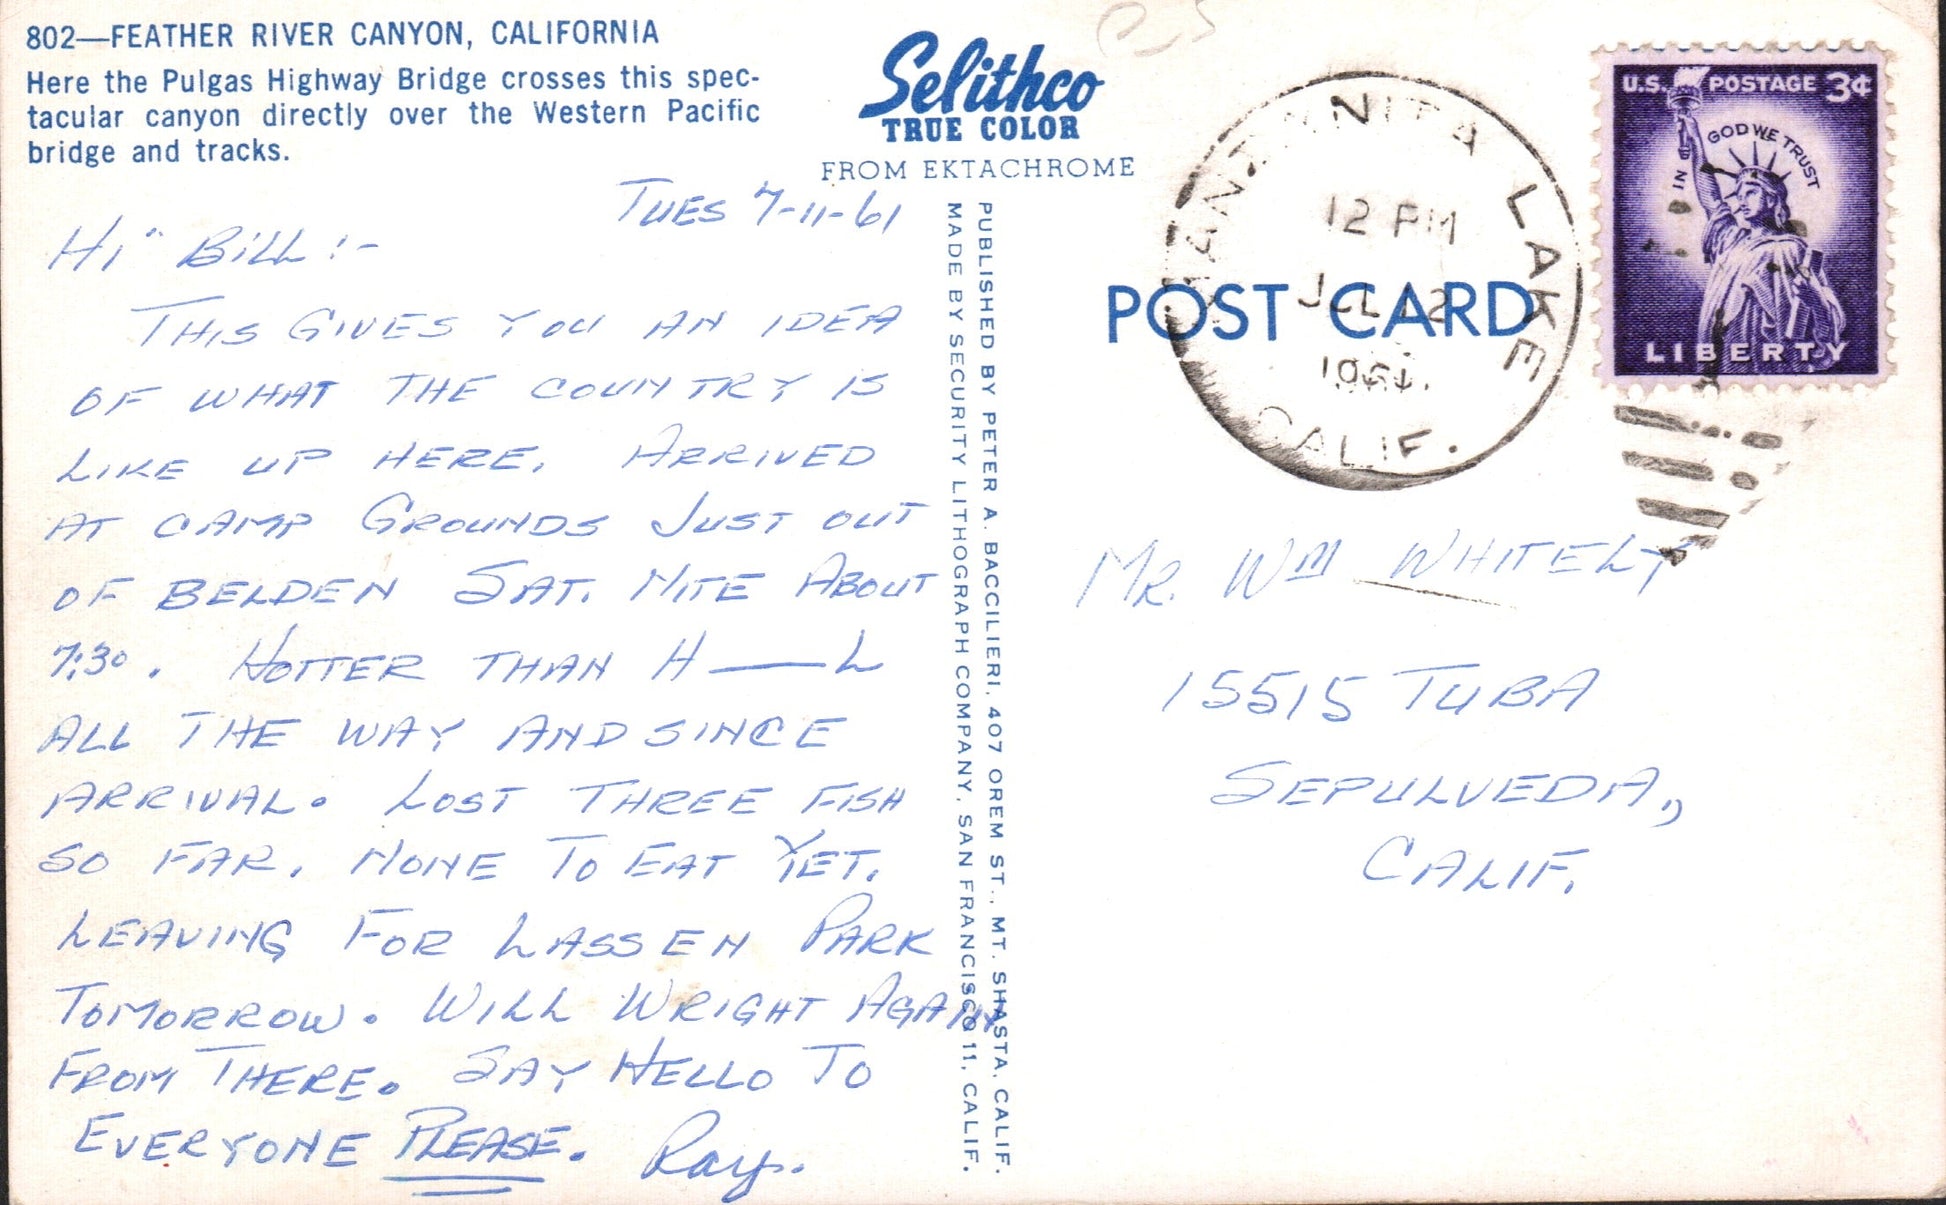 802—FEATHER RIVER CANYON, CALIFORNIA
Here the Pulgas Highway Bridge crosses this spec-
tacular canyon directly over the Western Pacific
bridge and tracks.
Selithco
TRUE COLOR
FROM EKTACHROME
TUES 7-11-61
HI" BILL:-
THIS GIVES YOU AN IDEA
OF WHAT THE COUNTRY IS
LIKE UP HERE. ARRIVED
AT CAMP GROUNDS JUST OUT
OF BELDEN SAT. NITE ABOUT
7:30. HOTTER THAN H——L
ALL THE WAY AND SINCE
ARRIVAL. LOST THREE FISH
SO FAR. NONE TO EAT YET.
LEAVING FOR LASSEN PARK
TOMORROW. WILL WRIGHT AGAIN
FROM THERE. SAY HELLO TO
EVERYONE PLEASE. Ray.
PUBLISHED BY PETER A. BACCILIERI, 407 OREM ST., MT. SHASTA, CALIF.
MADE BY SECURITY LITHOGRAPH COMPANY, SAN FRANCISCO 11, CALIF.
POST CARD
MANZANITA LAKE
12 PM
JUL 12
1961
CALIF.
U.S. POSTAGE 3¢
IN GOD WE TRUST
LIBERTY
MR. WM WHITELY
15515 TUBA
SEPULVEDA,,
CALIF.